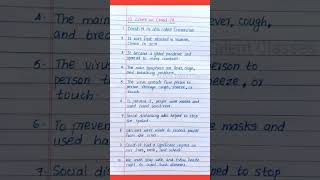 10 Lines on Covid-19
1- Covid-19 is also called Coronavirus
2- It was first detected in Wuhan,
China in 2019
3- It became a global pandemic and
spread to many countries
4- The main symptoms are fever, cough,
and breathing problems.
5- The virus spreads from person to
person through cough, sneeze, or
touch
6- To prevent it, people wear masks and
used hand sanitizers.
7- Social distancing also helped to stop
the spread.
8- Vaccines were made to protect people
from the virus
9- Covid-19 had a significant impact on
our lives, work, and school
10- We must stay safe and follow health
rules to avoid such diseases
4- The main
ever, cough, and
breat
5- The virus
person to
person t
eeze, or
touch
6- To preven
masks and
used ha
7- Social dis
to stop